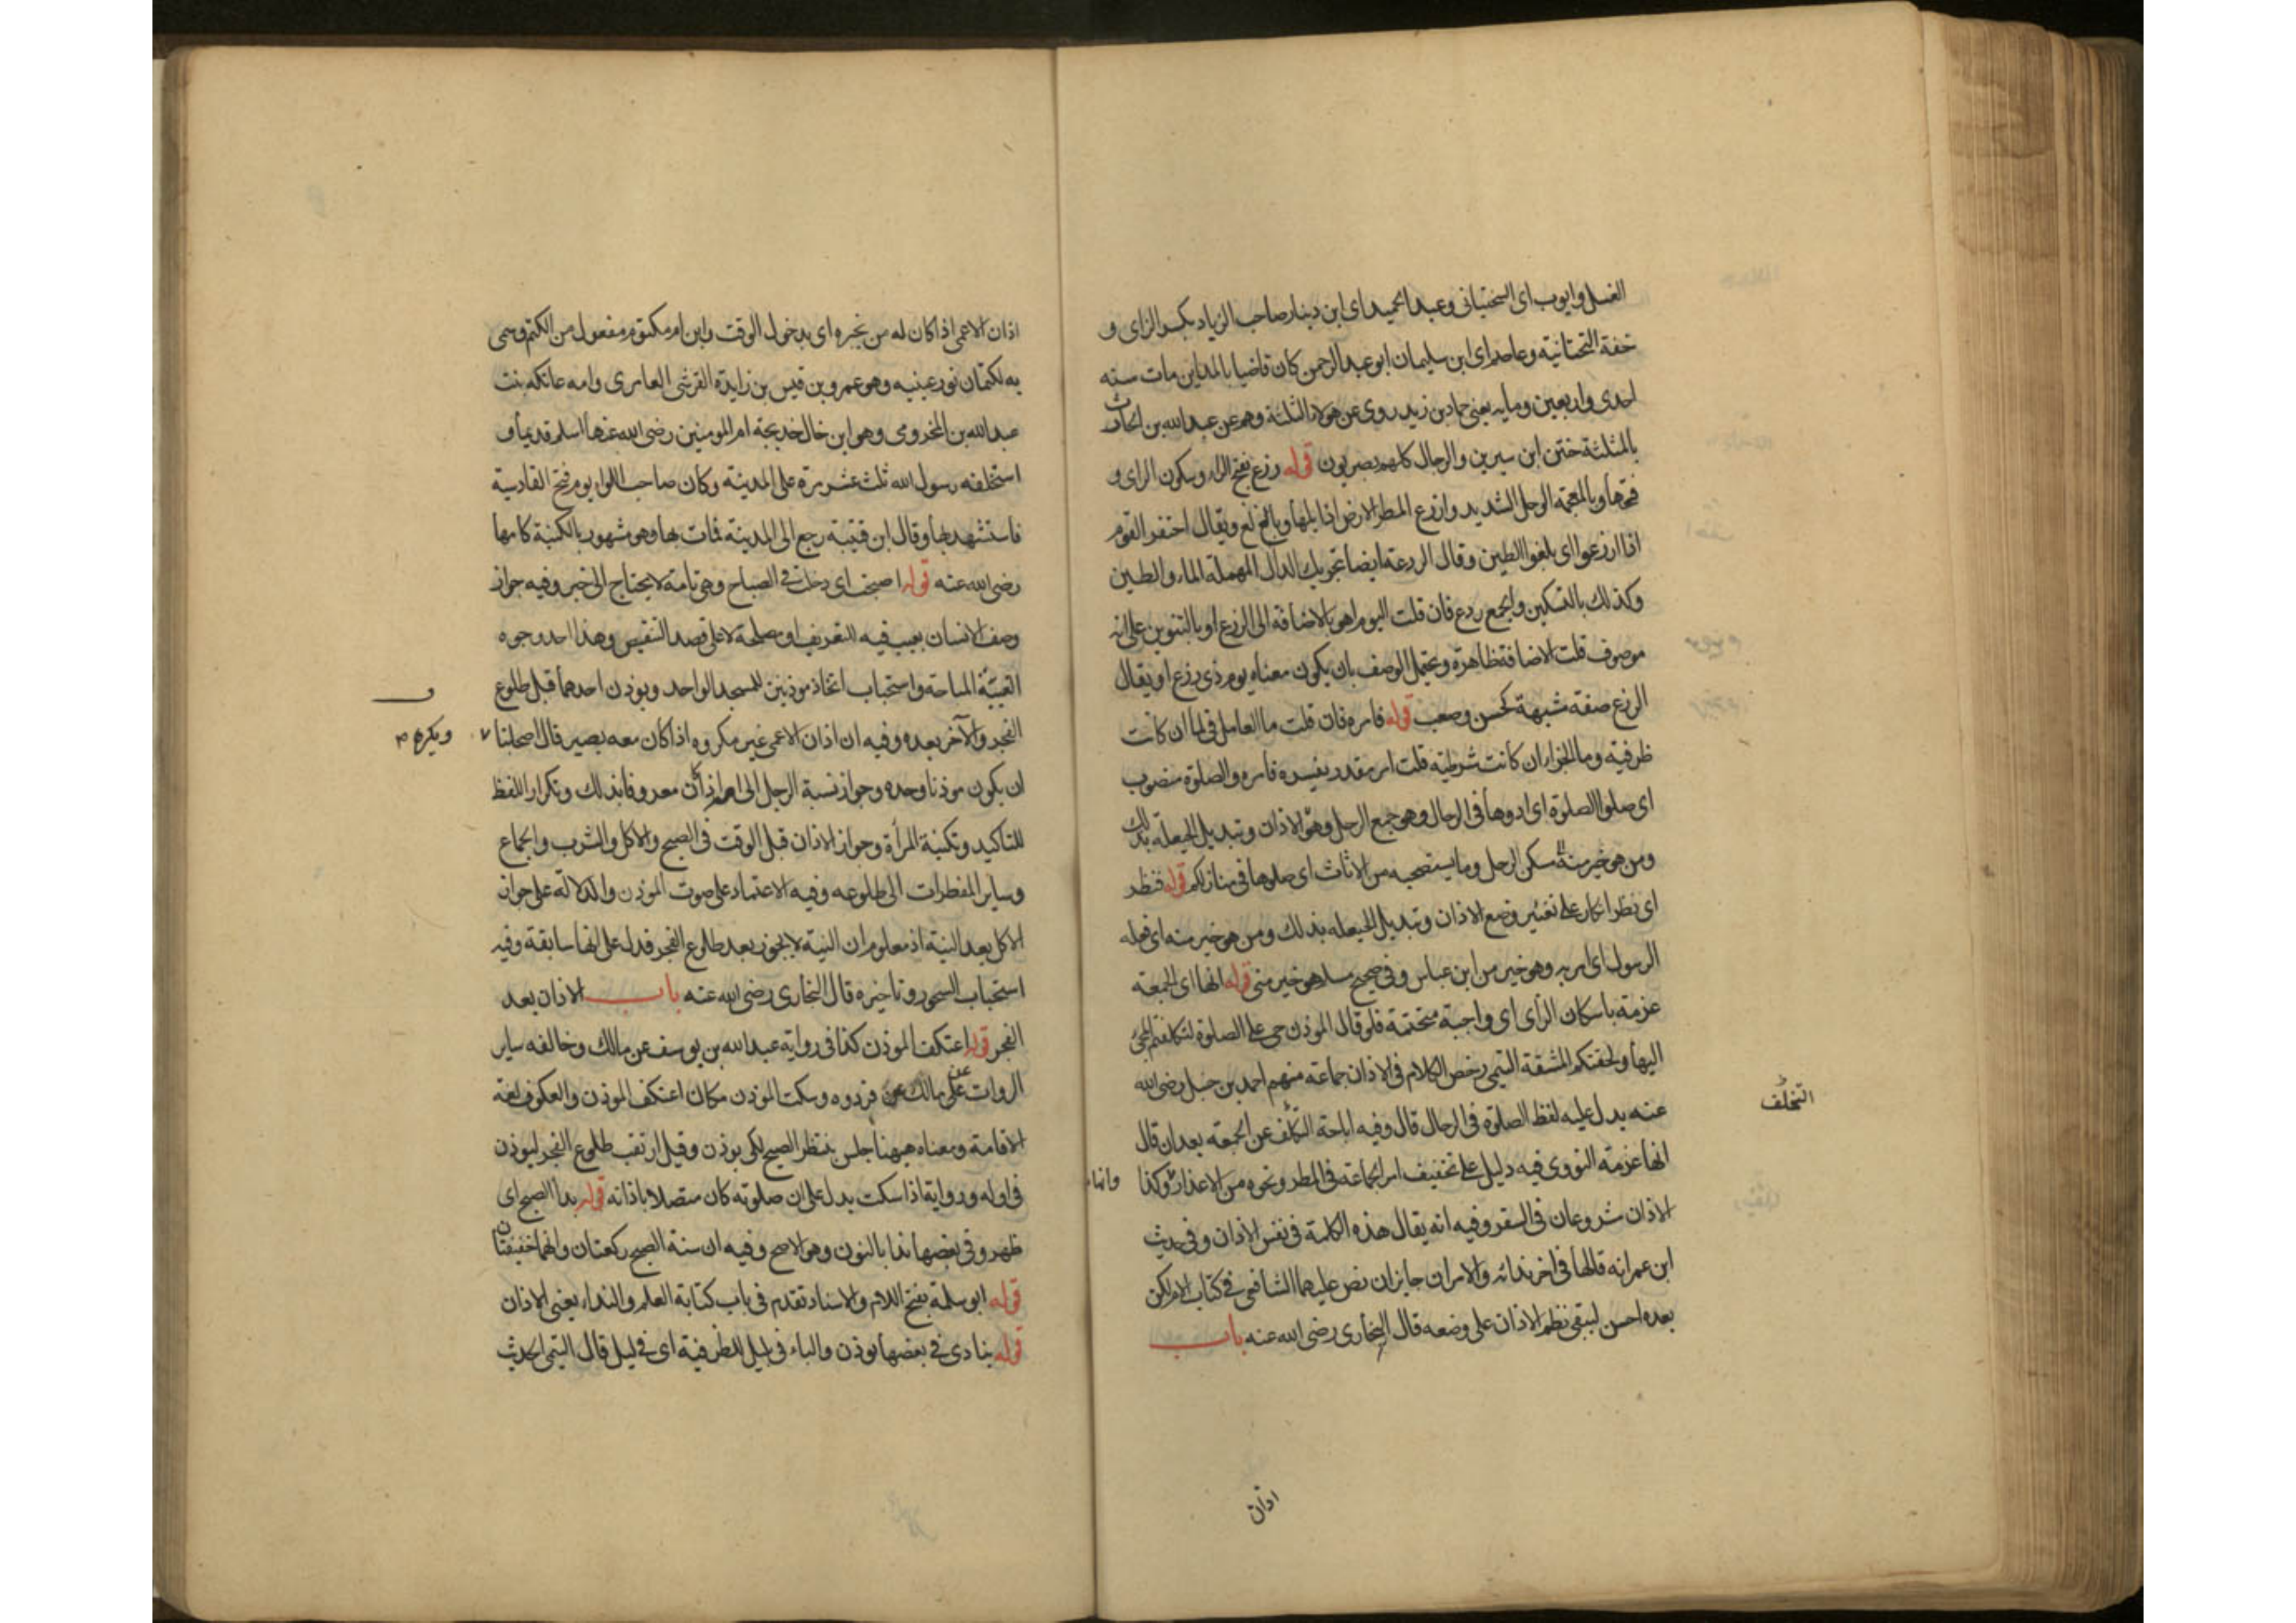 الغسل وايوب اى السختيانى وعبد الحميد اى ابن دينار صاحب الزياد بكسر الزاى و
خفة التحتانية وعاصم اى ابن سليمان ابو عبد الرحمن كان قاضيا بالمداين مات سنه
احدى واربعين ومايه يعنى حماد بن زيد روى عن هولاء الثلثة وهم عن عبد الله بن الحارث
بالمثلثة ختن ابن سيرين والرجال كلهم بصريون قوله رزغ بفتح الراء وسكون الزاى و
فتحها وبالمعجمة الوحل الشديد وارزغ المطر الارض اذا بلها وبالغ ويقال احتفر القوم
اذا ارزغوا اى بلغوا الطين وقال الردعة ايضا بتحريك الدال المهملة الماء والطين
وكذلك بالتسكين والجمع ردع فان قلت اليوم اهو بالاضافة الى الرزغ او بالتنوين على انه
موصوف قلت الاضافة ظاهرة ويحتمل الوصف بان يكون معناه يوم ذى رزغ او يقال
الرزغ صفة مشبهة كحسن وصعب قوله فامره فان قلت ما العامل فى لما ان كانت
ظرفية وما الجزا ان كانت شرطية قلت امر مقدر يفسره فامره والصلوة منصوب
اى صلوا الصلوة اى ادوها فى الرحال وهو جمع الرحل وهو الاذان وتبديل الحيعلة بذلك
ومن هو خير منه مسكن الرحل وما يستصحبه من الاثاث اى صلوها فى منازلكم قوله فنظر
اى نظر انكار على تغيير وضع الاذان وتبديل الحيعله بذلك ومن هو خير منه اى فعله
الرسول اى امر به وهو خير من ابن عباس وفى صحيح مسلم هو خير منى قوله انها اى الجمعة
عزمة باسكان الزاى اى واجبة متحتمة فلو قال الموذن حى على الصلوة لتكلفتم المجئ
اليها ولحقتكم المشقة التيمى رخص الكلام فى الاذان جماعة منهم احمد بن حنبل رضى الله
عنه يدل عليه لفظ الصلوة فى الرحال قال وفيه اباحة التخلف عن الجمعه بعد ان قال
التخلف
انها عزمة النووى فيه دليل على تخفيف امر الجماعة فى المطر ونحوه من الاعذار وكذا
وانها
الاذان مشروعان فى السفر وفيه انه يقال هذه الكلمة فى نفس الاذان وفى حديث
ابن عمر انه قالها فى اخر ندائه والامران جايزان نص عليهما الشافعى فى كتاب الام لكن
بعده احسن ليبقى نظم الاذان على وضعه قال البخارى رضى الله عنه باب
اذان
اذان الاعمى اذا كان له من يخبره اى بدخول الوقت وابن ام مكتوم مفعول من الكتم وسمى
به لكتمان نور عينيه وهو عمرو بن قيس بن زايدة القرشى العامرى وامه عاتكه بنت
عبد الله بن المخزومى وهو ابن خال خديجة ام المومنين رضى الله عنها اسلم قديما و
استخلفه رسول الله ثلث عشر مرة على المدينة وكان صاحب اللواء يوم فتح القادسية
فاستشهد بها وقال ابن قتيبة رجع الى المدينة فمات بها وهو مشهور بالكنية كامها
رضى الله عنه قوله اصبحت اى دخلت فى الصباح وهى تامة لا يحتاج الى خبر وفيه جواز
وصف الانسان بعيب فيه للتعريف او مصلحة لا على قصد التنقيص وهذا احد وجوه
الغيبة المباحة واستحباب اتخاذ موذنين للمسجد الواحد ويوذن احدهما قبل طلوع
الفجر والآخر بعده وفيه ان اذان الاعمى غير مكروه اذا كان معه بصير قال اصحابنا
ويكره
ان يكون موذنا وحده وجواز نسبة الرجل الى امه اذا كان معروفا بذلك وتكرار اللفظ
للتاكيد وتكنية المرأة وجواز الاذان قبل الوقت فى الصبح والاكل والشرب والجماع
وساير المفطرات الى طلوعه وفيه الاعتماد على صوت الموذن والدلالة على جواز
الاكل بعد النية اذ معلوم ان النية لا يجوز بعد طلوع الفجر فدل على انها سابقة وفيه
استحباب السحور وتاخيره قال البخارى رضى الله عنه باب الاذان بعد
الفجر قوله اعتكف الموذن كذا فى رواية عبد الله بن يوسف عن مالك وخالفه ساير
الروات عن مالك فرووه وسكت الموذن مكان اعتكف الموذن والعكوف لغة
الاقامة ومعناه هيهنا جلس ينتظر الصبح لكى يوذن وقيل ارتقب طلوع الفجر ليوذن
فى اوله ورواية اذا سكت يدل على ان صلوته كان متصلا باذانه قوله بدا الصبح اى
ظهر وفى بعضها ندا بالنون وهو الاصح وفيه ان سنة الصبح ركعتان وانهما خفيفتان
قوله ابو سلمة بفتح اللام والاسناد تقدم فى باب كتابة العلم والنداء يعنى الاذان
قوله ينادى فى بعضها يوذن والباء فى بليل للظرفية اى فى ليل قال التيمى الحديث